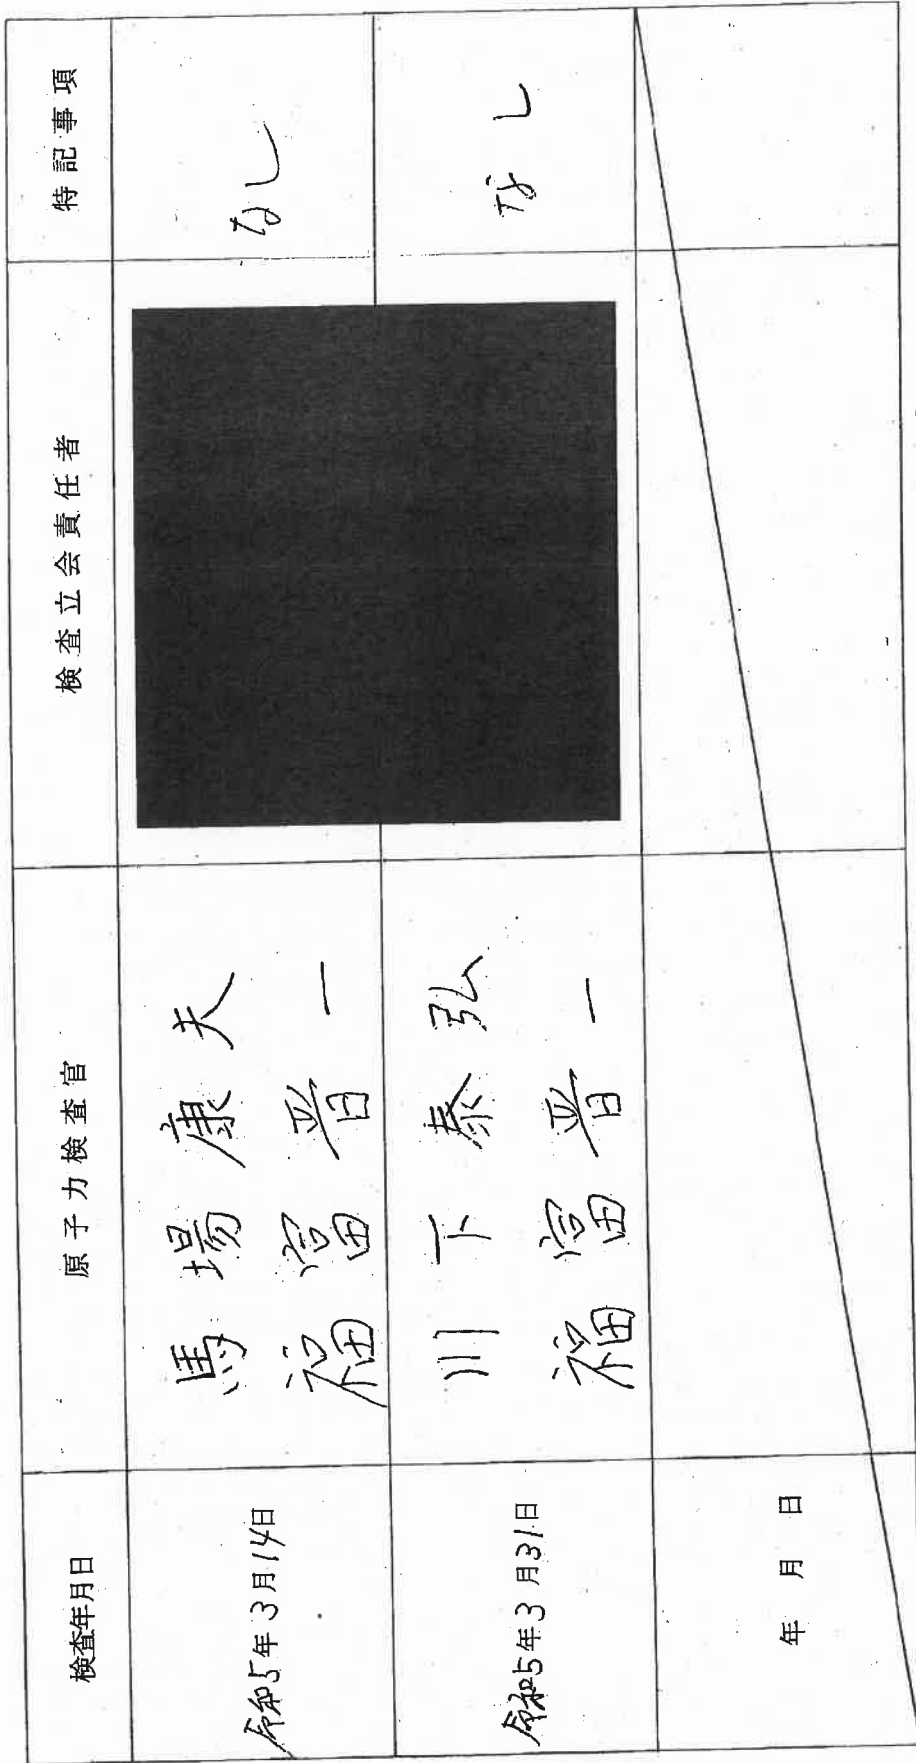 検査年月日
原子力検査官
検査立会責任者
特記事項
令和5年3月14日
馬場康夫
福富晋一
なし
令和5年3月31日
川下泰弘
福富晋一
なし
年 月 日